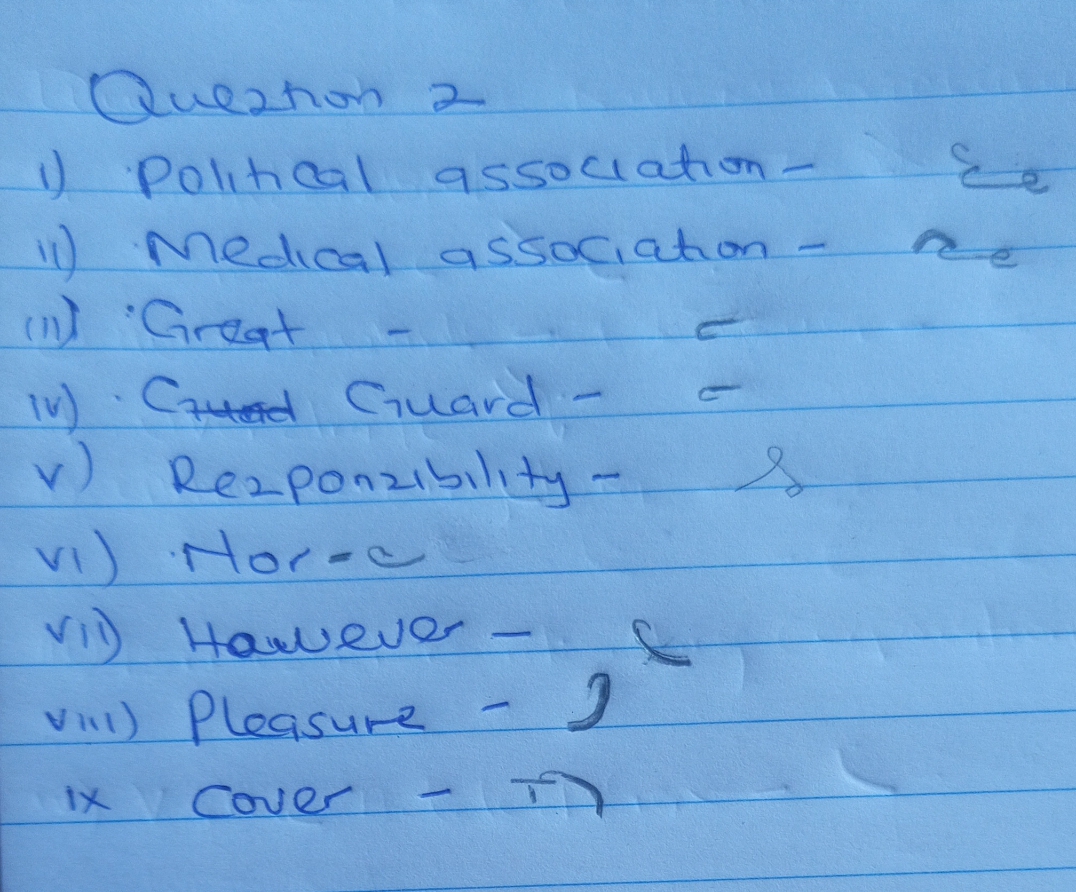 Question 2
i) Political association -
ii) Medical association -
iii) Great -
iv) Guard -
v) Responzibility -
vi) Nor -
vii) However -
viii) Pleasure -
ix Cover -